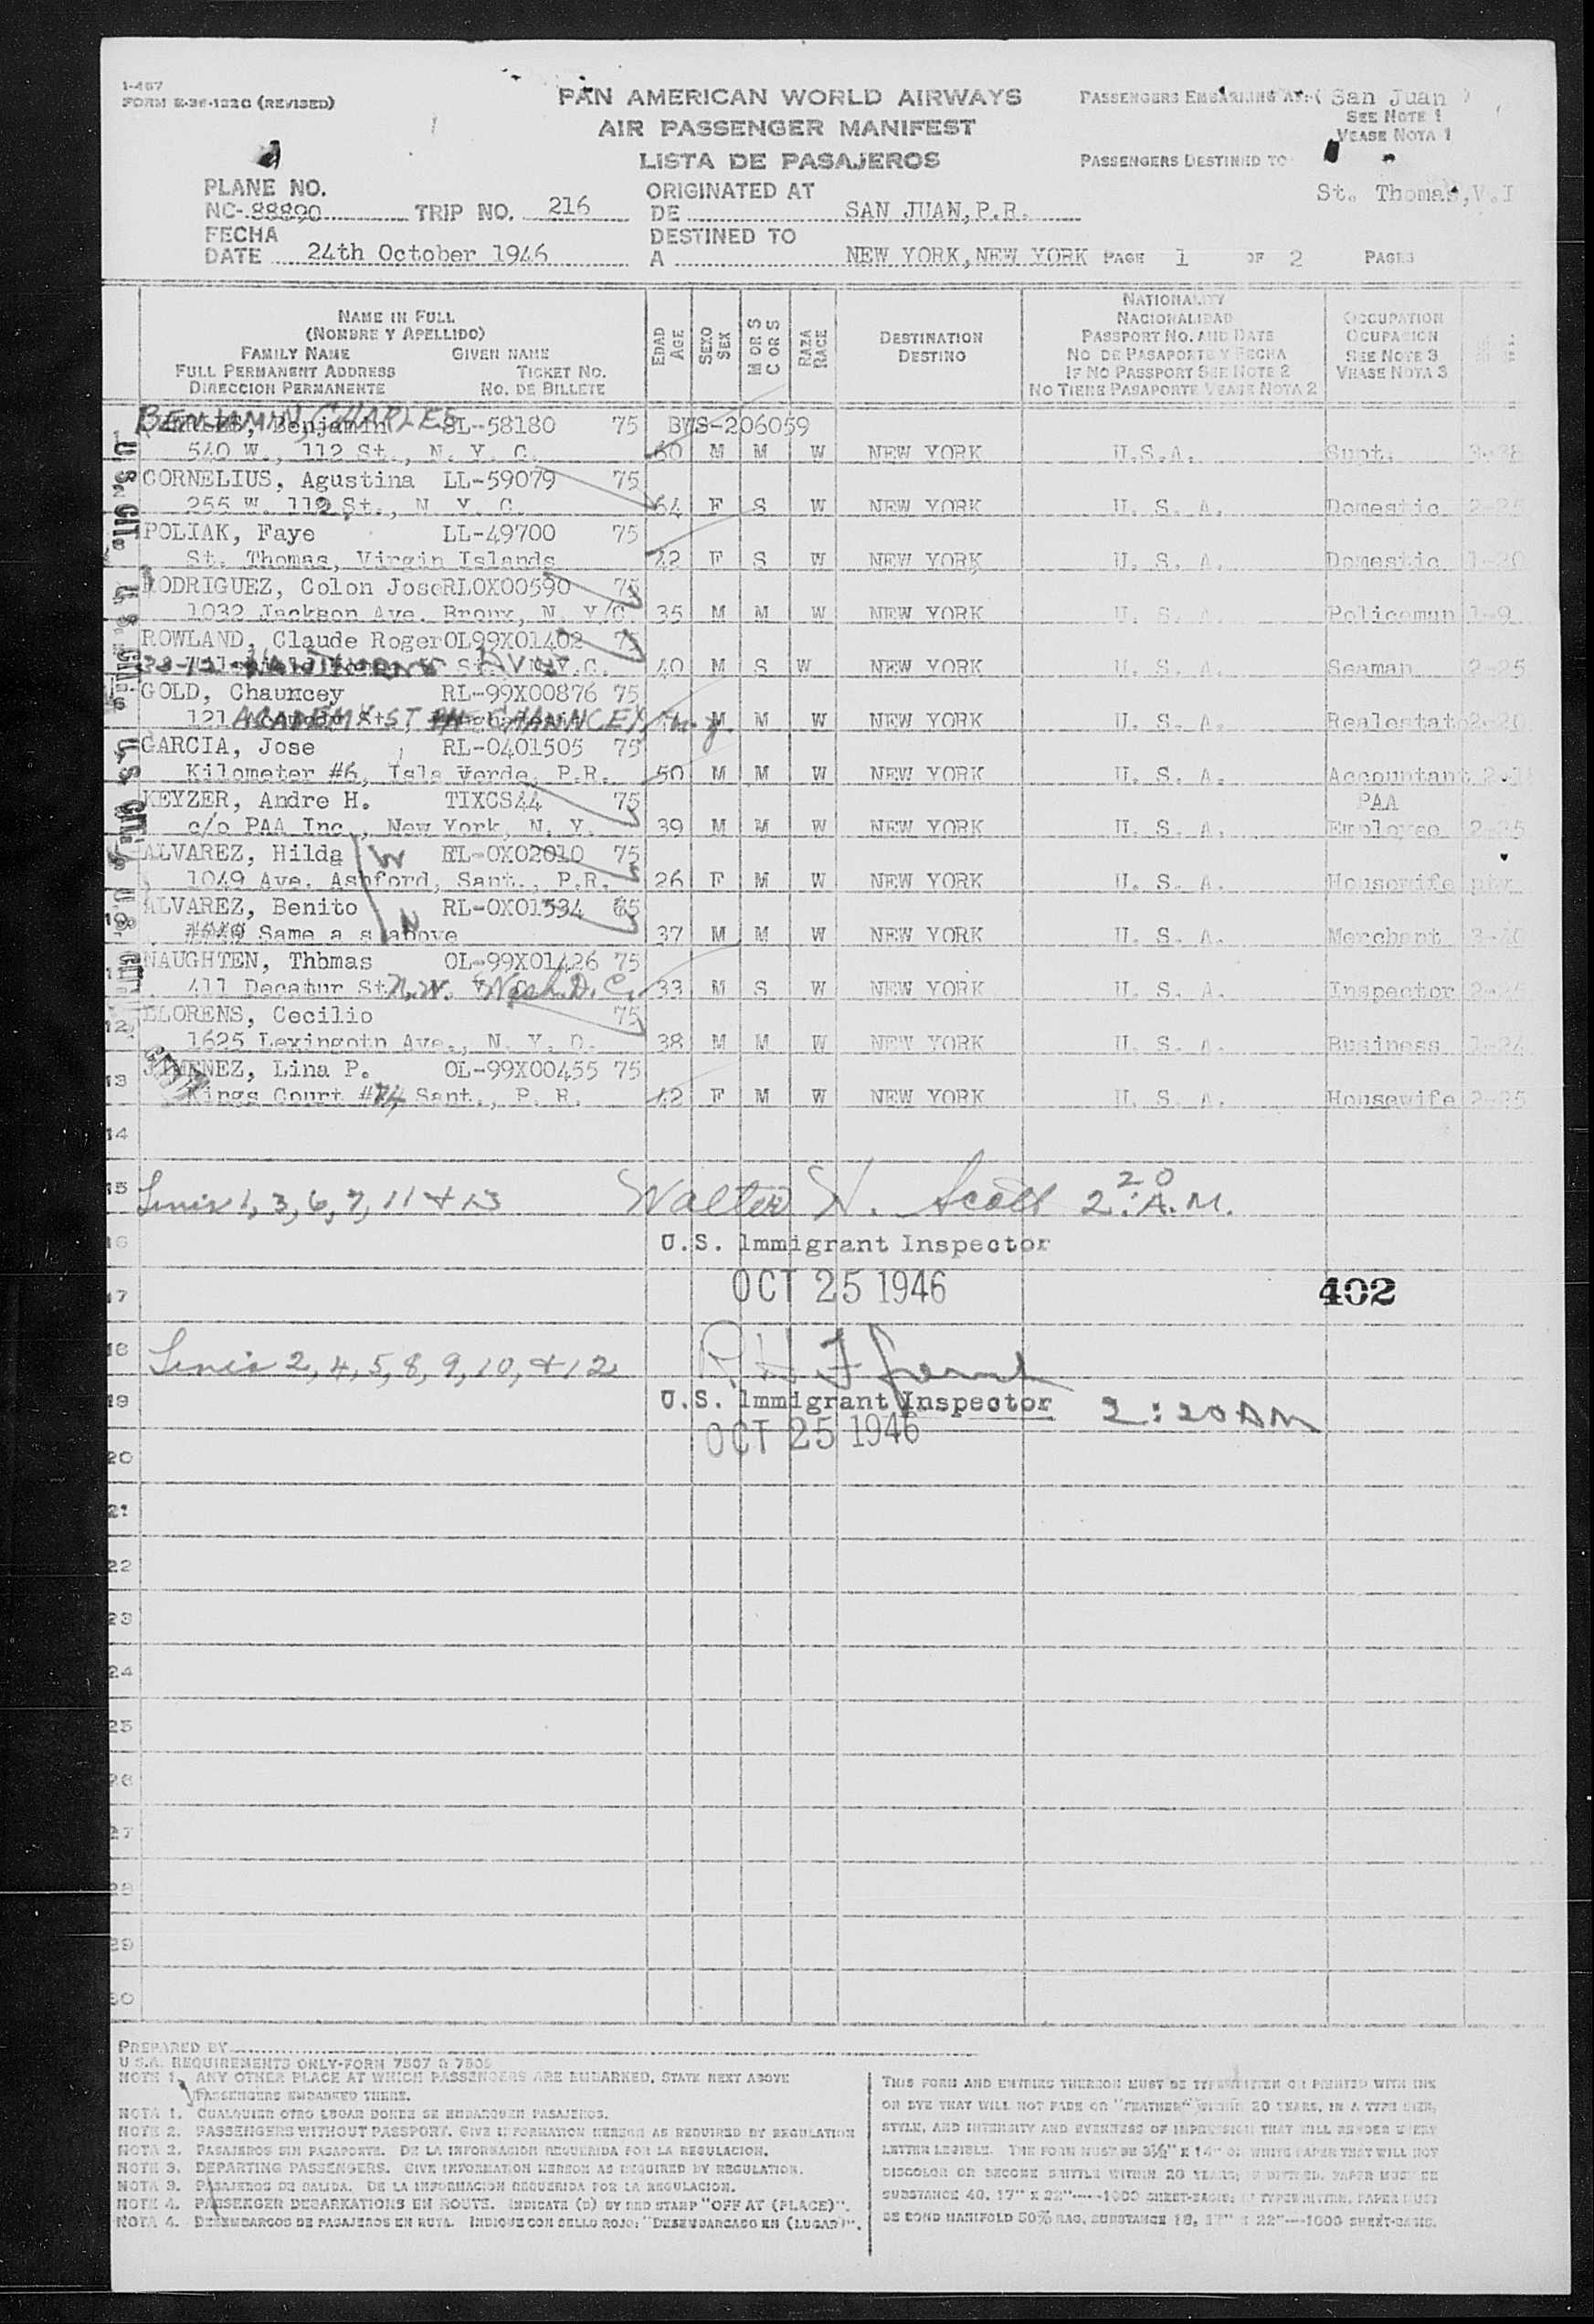 1-467
FORM E-36-122C (REVISED)
PAN AMERICAN WORLD AIRWAYS
AIR PASSENGER MANIFEST
LISTA DE PASAJEROS
PASSENGERS EMBARKING AT:( San Juan )
SEE NOTE 1
VEASE NOTA 1
PASSENGERS DESTINED TO
St. Thomas, V.I
PLANE NO.
NC-88890 TRIP NO. 216
FECHA
DATE 24th October 1946
ORIGINATED AT
DE SAN JUAN, P.R.
DESTINED TO
A NEW YORK, NEW YORK PAGE 1 OF 2 PAGES
NAME IN FULL
(NOMBRE Y APELLIDO)
FAMILY NAME GIVEN NAME
FULL PERMANENT ADDRESS TICKET NO.
DIRECCION PERMANENTE NO. DE BILLETE
EDAD AGE
SEXO SEX
M OR S C OR S
RAZA RACE
DESTINATION
DESTINO
NATIONALITY
NACIONALIDAD
PASSPORT NO. AND DATE
NO DE PASAPORTE Y FECHA
IF NO PASSPORT SEE NOTE 2
NO TIENE PASAPORTE VEASE NOTA 2
OCCUPATION
OCUPACION
SEE NOTE 3
VEASE NOTA 3
BENJAMIN, CHARLES
Benjamin SL-58180 75 BWS-206059
540 W., 112 St., N. Y. C. 60 M M W NEW YORK U.S.A. Supt.
CORNELIUS, Agustina LL-59079 75
255 W. 112 St., N. Y. C. 64 F S W NEW YORK U. S. A. Domestic 2-25
POLIAK, Faye LL-49700 75
St. Thomas, Virgin Islands 22 F S W NEW YORK U. S. A. Domestic 1-20
RODRIGUEZ, Colon Jose RLOX00590 75
1032 Jackson Ave. Bronx, N. Y/C. 35 M M W NEW YORK U. S. A. Policeman 1-9
ROWLAND, Claude Roger OL99X01402 75
40 M S W NEW YORK U. S. A. Seaman 2-25
GOLD, Chauncey RL-99X00876 75
121 ACADEMY ST M M W NEW YORK U. S. A. Realestate 2-20
GARCIA, Jose RL-0401505 75
Kilometer #6, Isla Verde, P.R. 50 M M W NEW YORK U. S. A. Accountant
KEYZER, Andre H. TIXCS44 75 PAA
c/o PAA Inc., New York, N. Y. 39 M M W NEW YORK U. S. A. Employee 2-35
ALVAREZ, Hilda W RL-0X02010 75
1049 Ave. Ashford, Sant., P.R. 26 F M W NEW YORK U. S. A. Housewife
10 ALVAREZ, Benito RL-0X01534 65
Same a s above 37 M M W NEW YORK U. S. A. Merchant 3-40
11 NAUGHTEN, Thomas OL-99X01426 75
411 Decatur St N.W. Wash. D. C. 33 M S W NEW YORK U. S. A. Inspector 2-25
12 LLORENS, Cecilio 75
1625 Lexingotn Ave., N. Y. C. 38 M M W NEW YORK U. S. A. Business 1-24
13 JIMENEZ, Lina P. OL-99X00455 75
Kings Court #74, Sant., P. R. 42 F M W NEW YORK U. S. A. Housewife 2-25
14
15 Lines 1, 3, 6, 7, 11 & 13 Walter H. Scott 2:20 A.M.
16 U.S. Immigrant Inspector
17 OCT 25 1946 402
18 Lines 2, 4, 5, 8, 9, 10, & 12
19 U.S. Immigrant Inspector 2:20 AM
OCT 25 1946
20
21
22
23
24
25
26
27
28
29
30
PREPARED BY
U.S.A. REQUIREMENTS ONLY-FORM 7507 & 7509
NOTE 1. ANY OTHER PLACE AT WHICH PASSENGERS ARE EMBARKED, STATE NEXT ABOVE
PASSENGERS EMBARKED THERE.
NOTA 1. CUALQUIER OTRO LUGAR DONDE SE EMBARQUEN PASAJEROS.
NOTE 2. PASSENGERS WITHOUT PASSPORT. GIVE INFORMATION HEREON AS REQUIRED BY REGULATION
NOTA 2. PASAJEROS SIN PASAPORTE. DE LA INFORMACION REQUERIDA POR LA REGULACION.
NOTE 3. DEPARTING PASSENGERS. GIVE INFORMATION HEREON AS REQUIRED BY REGULATION.
NOTA 3. PASAJEROS DE SALIDA. DE LA INFORMACION REQUERIDA POR LA REGULACION.
NOTE 4. PASSENGER DEBARKATIONS EN ROUTE. INDICATE (D) BY RED STAMP "OFF AT (PLACE)".
NOTA 4. DESEMBARCOS DE PASAJEROS EN RUTA. INDIQUE CON SELLO ROJO: "DESEMBARCADO EN (LUGAR)".
THIS FORM AND ENTRIES THEREON MUST BE TYPEWRITTEN OR PRINTED WITH INK
OR DYE THAT WILL NOT FADE OR "FEATHER" WITHIN 20 YEARS, IN A TYPE SIZE,
STYLE, AND INTENSITY AND EVENNESS OF IMPRESSION THAT WILL RENDER EVERY
LETTER LEGIBLE. THE FORM MUST BE 8½" X 14" ON WHITE PAPER THAT WILL NOT
DISCOLOR OR BECOME BRITTLE WITHIN 20 YEARS; IF PRINTED, PAPER MUST BE
SUBSTANCE 40, 17" X 22"----1000 SHEET-BASIS; IF TYPEWRITTEN, PAPER MUST
BE BOND MANIFOLD 50% RAG, SUBSTANCE 18, 17" X 22"----1000 SHEET-BASIS.